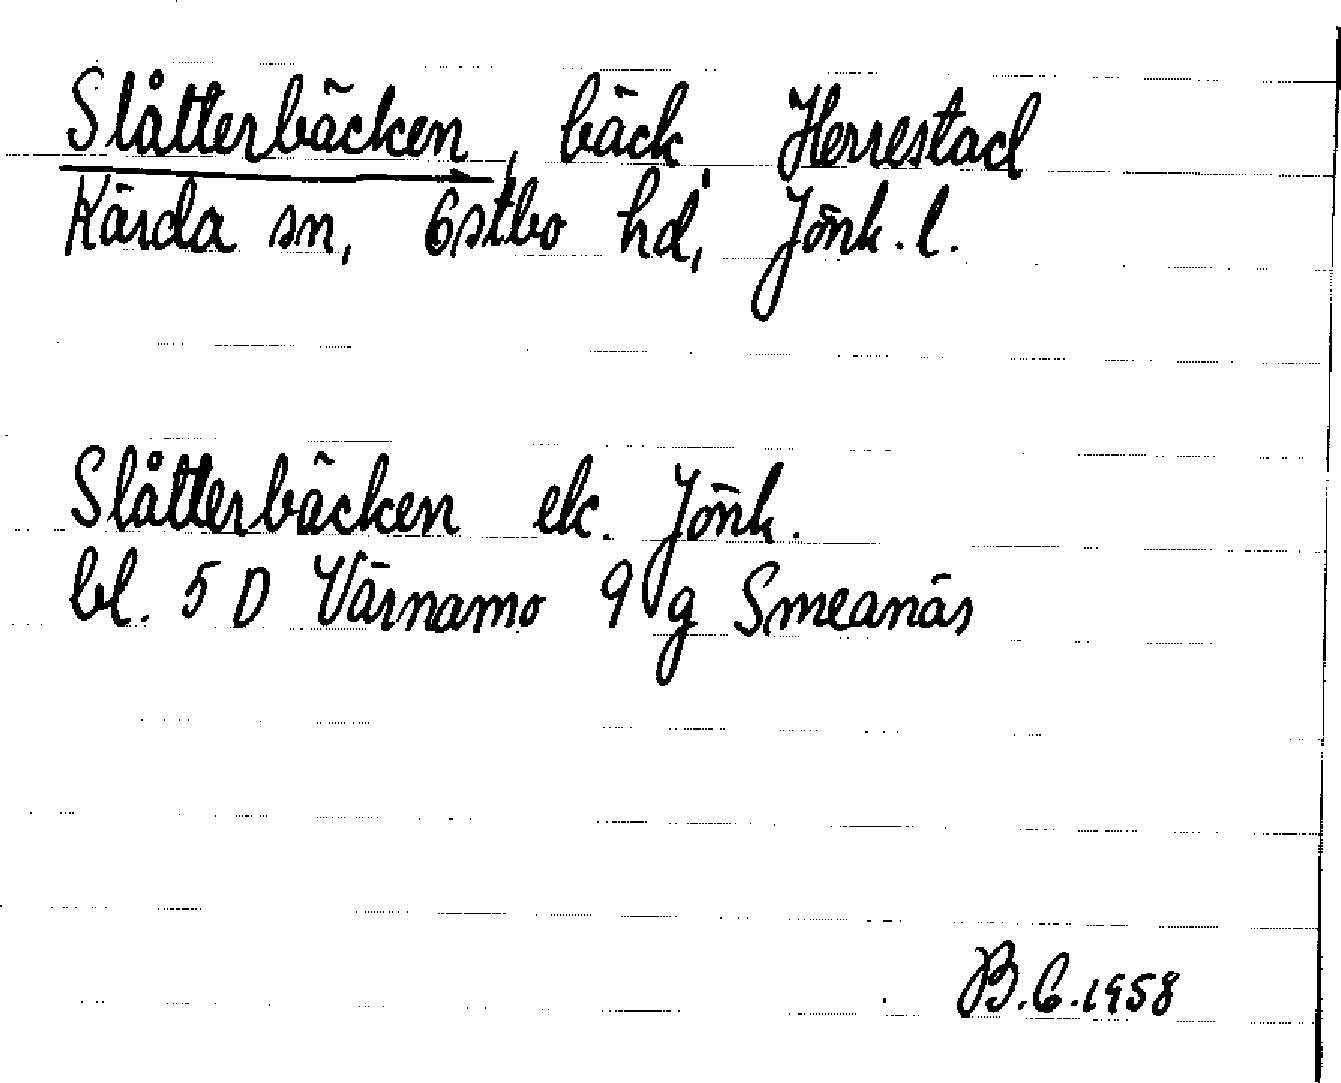 Slåtterbäcken, bäck Herrestad
Kärda sn, Östbo hd, Jönk. l.
Slåtterbäcken ek. Jönk.
bl. 5 D Värnamo 9 g Smeanäs
B.C.1958